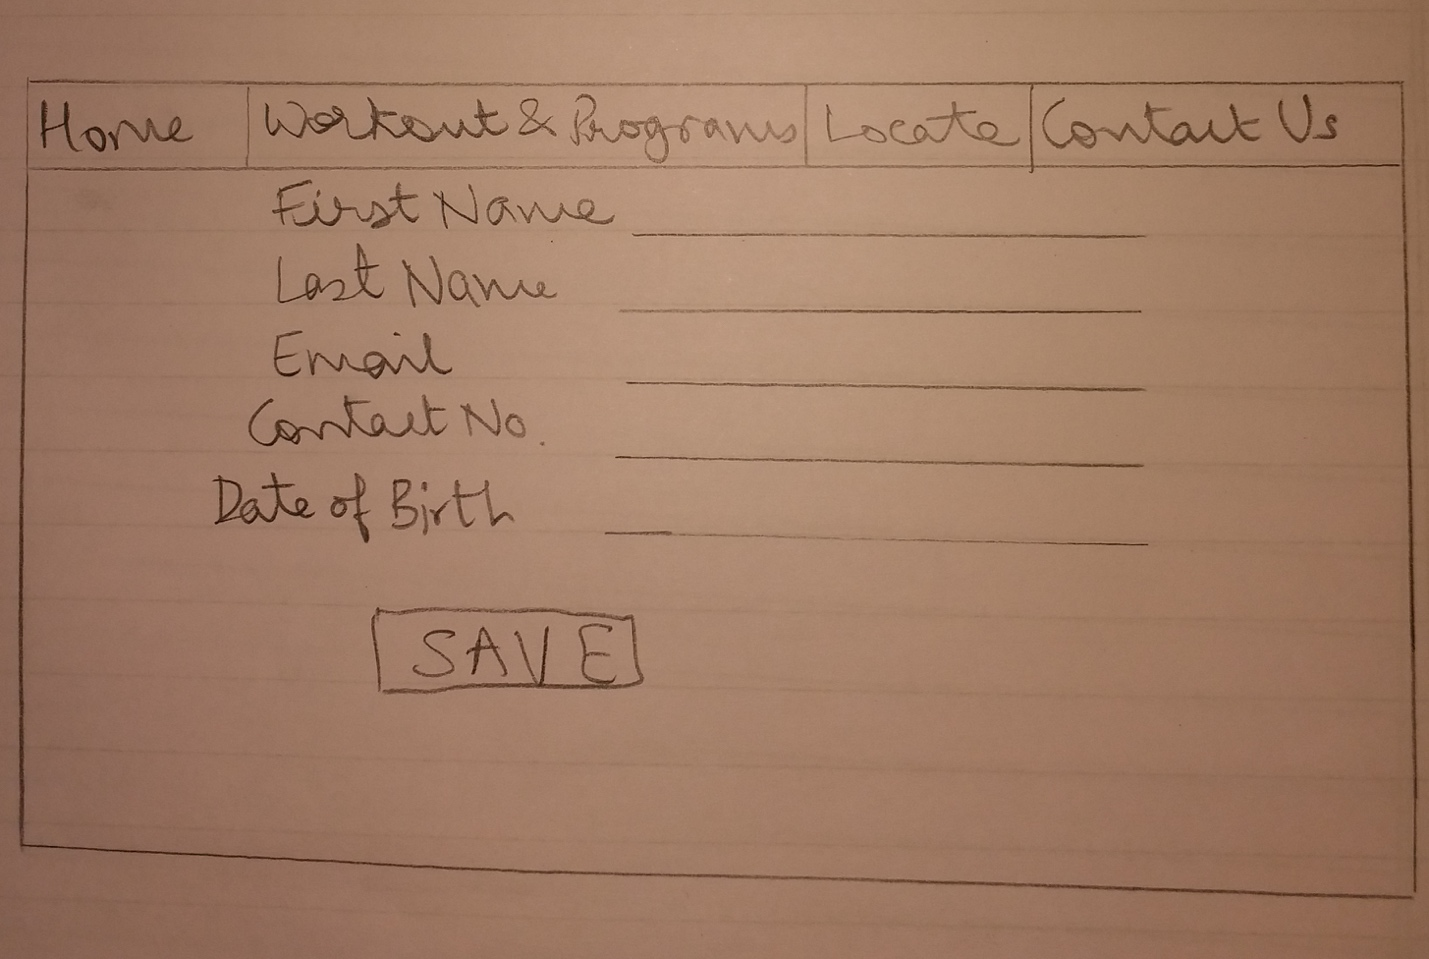 Home Workout & Programs Locate Contact Us
First Name
Last Name
Email
Contact No.
Date of Birth
SAVE